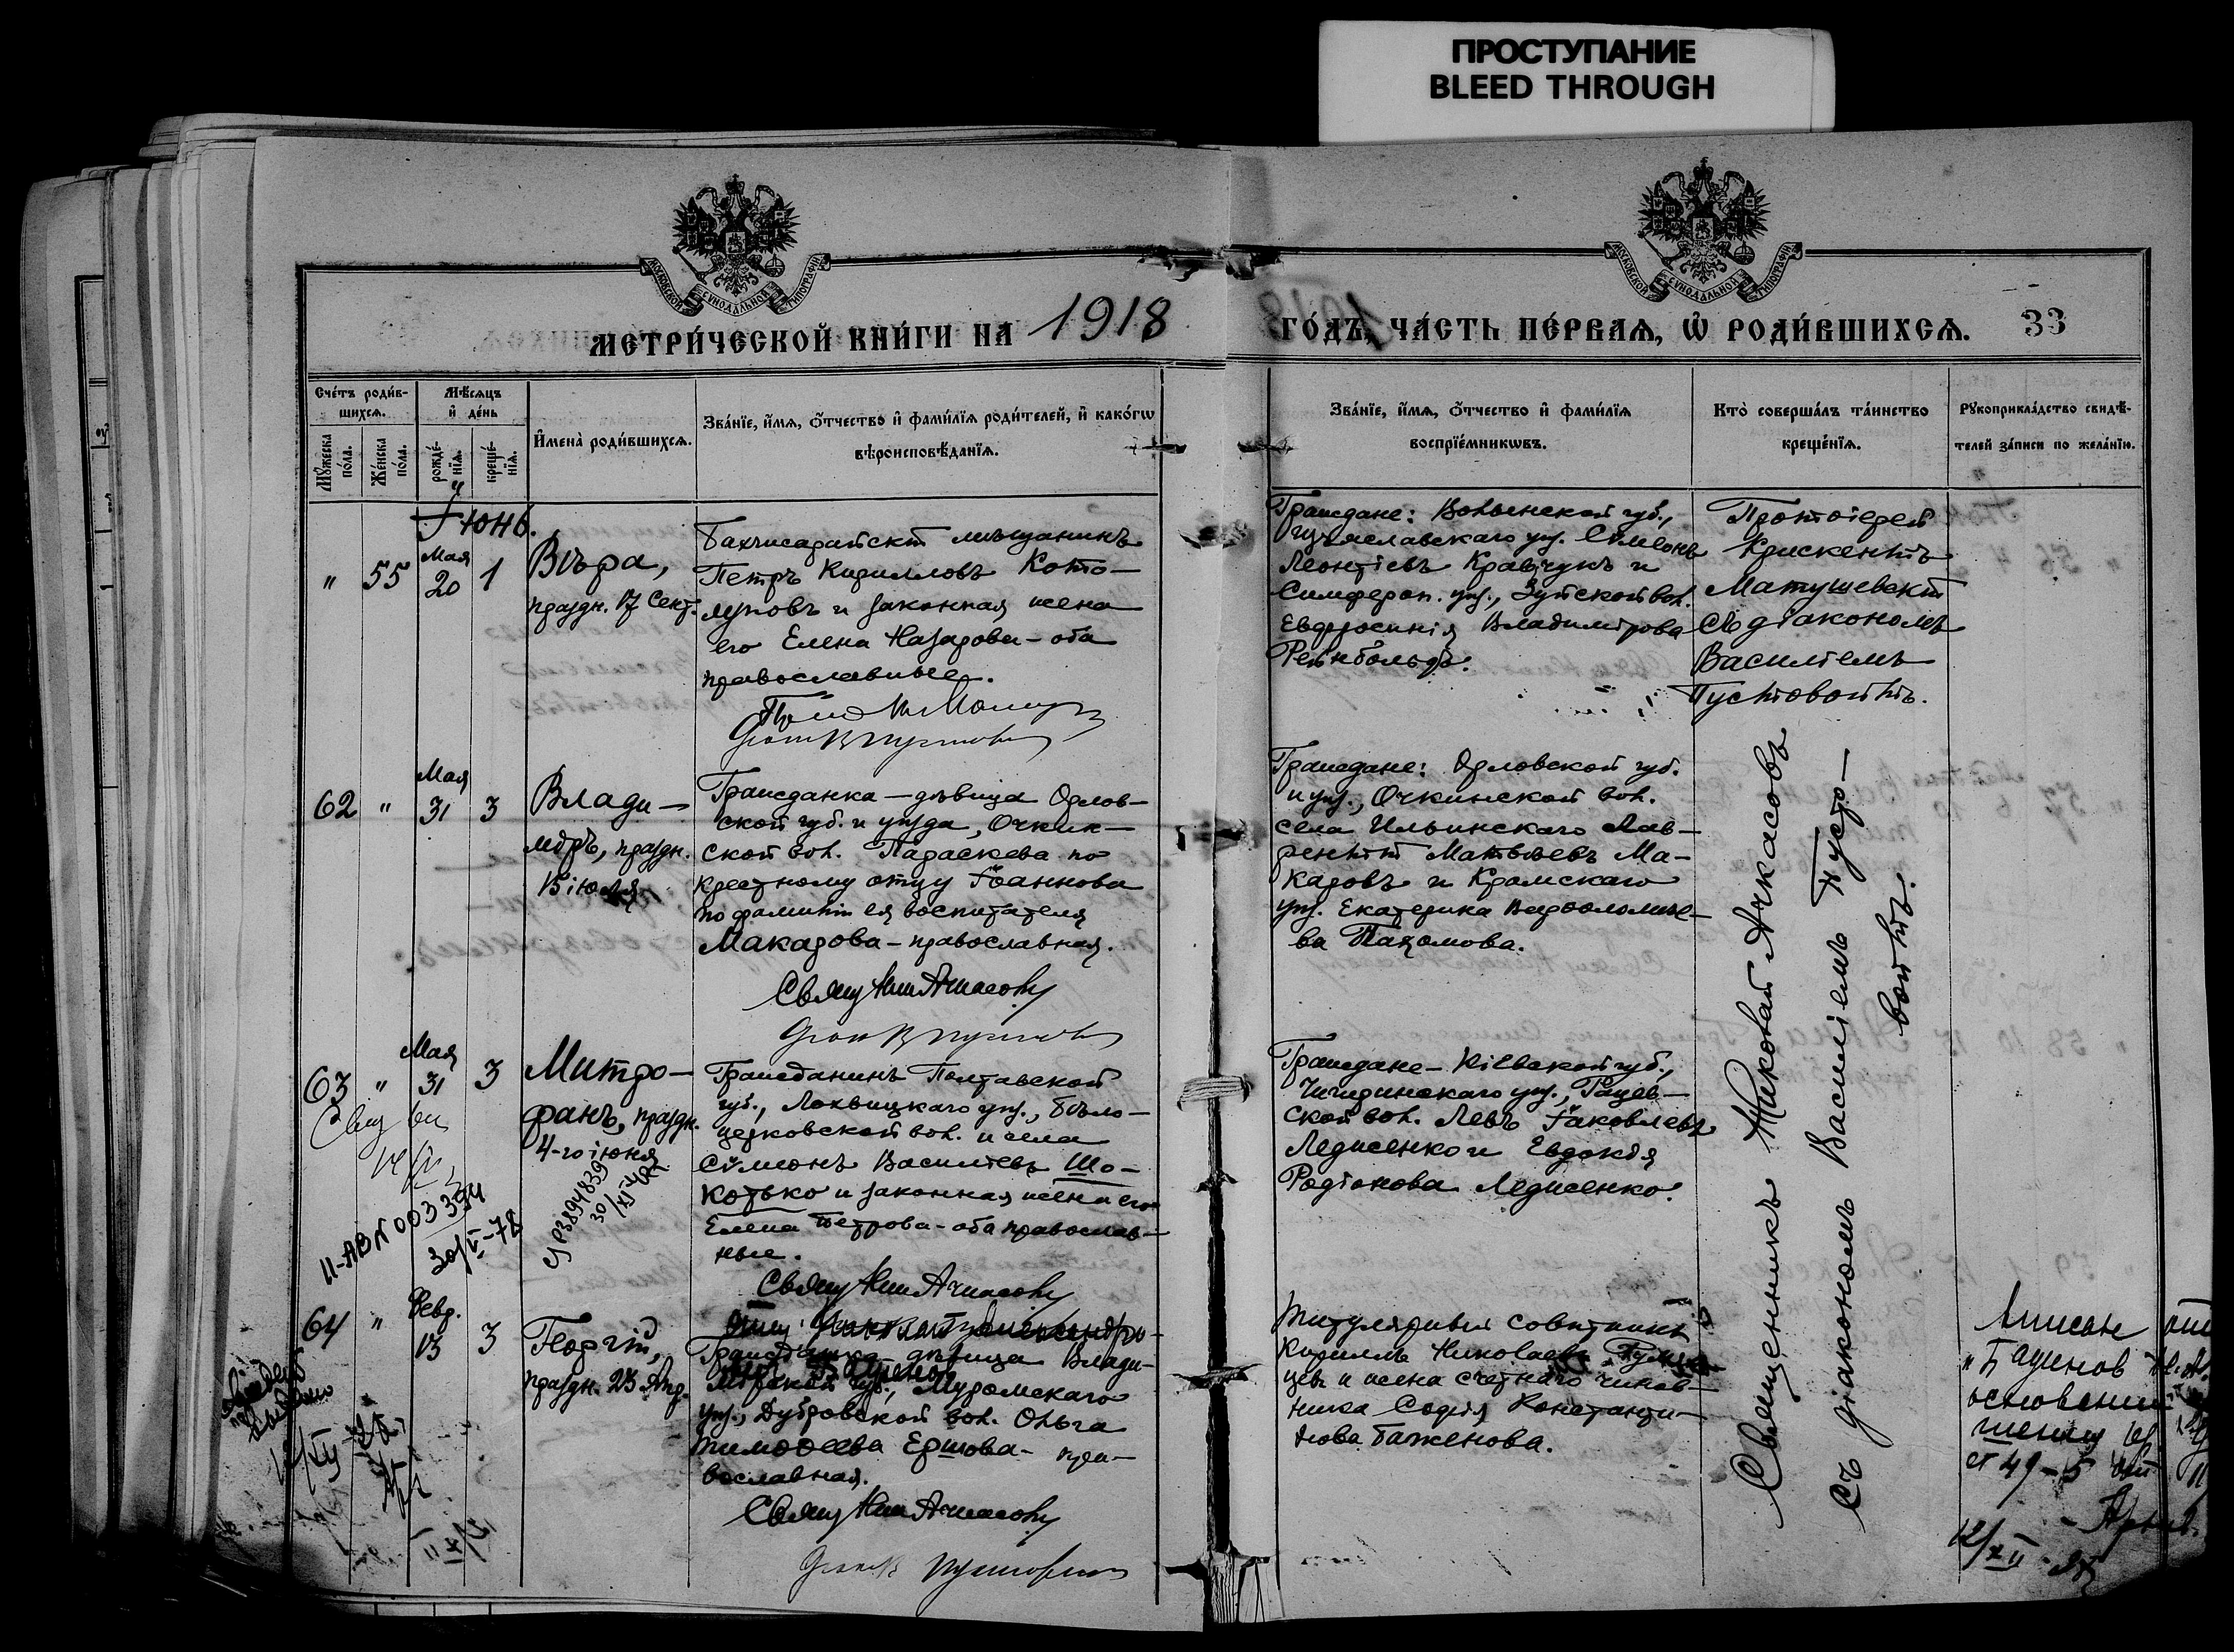 ПРОСТУПАНИЕ
BLEED THROUGH
МОСКОВСКОЙ СѴНОДАЛЬНОЙ ТИПОГРАФІИ
МОСКОВСКОЙ СѴНОДАЛЬНОЙ ТИПОГРАФІИ
МЕТРИ́ЧЕСКОЙ КНИ́ГИ НА 1918
ГО́ДЪ, ЧА́СТЬ ПЕ́РВАѦ, Ѡ҆ РОДИ́ВШИХСѦ. 33
Сче́тъ роди́в-
шихсѧ.
Мѣ́сѧцъ
и҆ де́нь
Мꙋ́жеска
по́ла.
Же́нска
по́ла.
рожде́-
нїѧ.
креще́-
нїѧ.
И҆мена̀ роди́вшихсѧ.
Зва́нїе, и҆́мѧ, ѻ҆́тчество и҆ фами́лїѧ роди́телей, и҆ како́гѡ
вѣроисповѣ́данїѧ.
Зва́нїе, и҆́мѧ, ѻ҆́тчество и҆ фами́лїѧ
воспрїе́мникѡвъ.
Кто̀ соверша́лъ та́инство
креще́нїѧ.
Рꙋкоприкла́дство свидѣ́-
телей за́писи по жела́нїю.
Іюнь.
" 55 Мая 20 1
Вѣра,
праздн. 17 Сент.
Бахчисарайскій мѣщанинъ
Петръ Кирилловъ Кото-
луповъ и законная жена
его Елена Назарова - оба
православные.
Граждане: Волынской губ.,
Изяславскаго уѣз. Сѵмеонъ
Леонтіевъ Кравчукъ и
Симфероп. уѣз., Зуйской вол.
Евфросинія Владимірова
Рейнбольдъ.
Протоіерей
Крискентъ
Матушевскій
съ діакономъ
Василіемъ
Пустовойтъ.
62 " Мая 31 3
Влади-
міръ, праздн.
15 іюля
Гражданка - дѣвица Орлов-
ской губ. и уѣзда, Очкин-
ской вол. Параскева по
крестному отцу Іоаннова
по фамиліи ея воспитателя
Макарова - православная.
Свящ Ник Ачкасовъ
Граждане: Орловской губ.
и уѣз., Очкинской вол.
села Ильинскаго Лав-
рентій Матвѣевъ Ма-
каровъ и Крамскаго
уѣз. Екатерина Варѳоломѣе-
ва Пахомова.
Священникъ Николай Ачкасовъ
съ діакономъ Василіемъ Пусто-
войтъ.
63 " Мая 31 3
Митро-
фанъ, праздн.
4-го іюня
Гражданинъ Полтавской
губ., Лохвицкаго уѣз., Бѣло-
церковской вол. и села
Сѵмеонъ Василіевъ Шо-
котько и законная жена его
Елена Петрова - оба православ-
ные.
Свящ Ник Ачкасовъ
Граждане - Кіевской губ.,
Чигиринскаго уѣз., Рацев-
ской вол. Левъ Іаковлевъ
Ледисенко и Евдокія
Родіонова Ледисенко.
II-АВ N 003394
30/V-78
64 " Февр. 13 3
Георгій,
праздн. 23 Апр.
Гражданка - дѣвица Влади-
мірской губ., Муромскаго
уѣз., Дубровской вол. Ольга
Тимоѳеева Ершова - пра-
вославная.
Свящ Ник Ачкасовъ
Титулярный совѣтникъ
Кириллъ Николаевъ
и жена счетнаго чинов-
ника Софія Константи-
нова Баженова.
12/XII